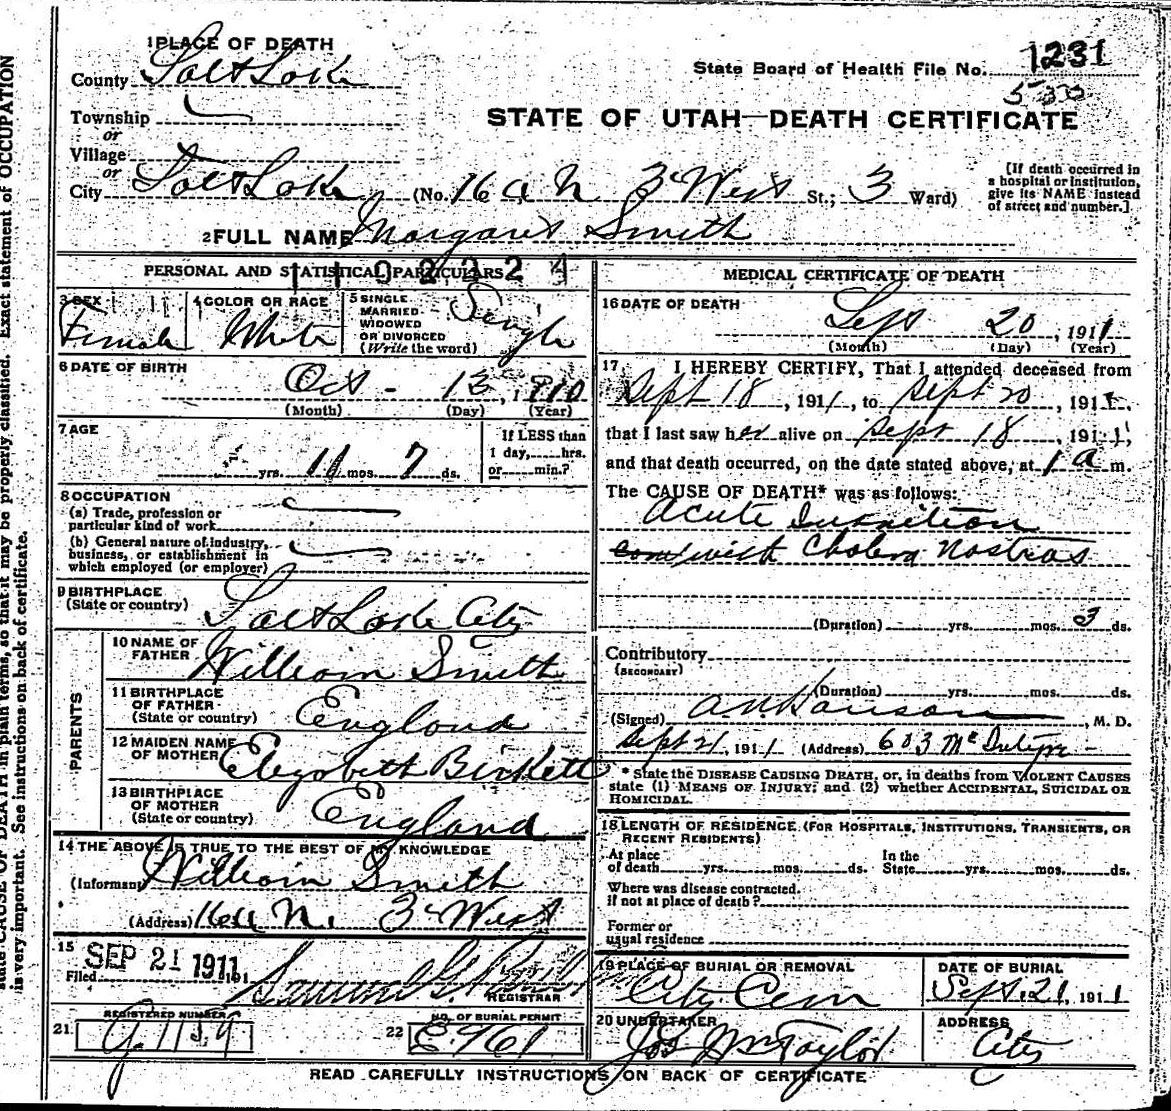 1 PLACE OF DEATH
County Salt Lake
State Board of Health File No. 1231
Township
or
Village
or
City Salt Lake (No. 16 N 3 West St.; 3 Ward)
STATE OF UTAH—DEATH CERTIFICATE
[If death occurred in
a hospital or institution,
give its NAME instead
of street and number.]
2 FULL NAME Margaret Smith
PERSONAL AND STATISTICAL PARTICULARS
3 SEX Female
4 COLOR OR RACE White
5 SINGLE
MARRIED
WIDOWED
OR DIVORCED
(Write the word) Single
6 DATE OF BIRTH
Oct - 13, 1910
(Month) (Day) (Year)
7 AGE
yrs. 11 mos. 7 ds.
If LESS than
1 day, hrs.
or min.?
8 OCCUPATION
(a) Trade, profession or
particular kind of work
(b) General nature of industry,
business, or establishment in
which employed (or employer)
9 BIRTHPLACE
(State or country) Salt Lake City
PARENTS
10 NAME OF
FATHER William Smith
11 BIRTHPLACE
OF FATHER
(State or country) England
12 MAIDEN NAME
OF MOTHER Elizabeth Birkett
13 BIRTHPLACE
OF MOTHER
(State or country) England
14 THE ABOVE IS TRUE TO THE BEST OF MY KNOWLEDGE
(Informant William Smith
(Address) N. 3 West
15
Filed SEP 21 1911
REGISTRAR
21 REGISTERED NUMBER
22 NO. OF BURIAL PERMIT
E961
MEDICAL CERTIFICATE OF DEATH
16 DATE OF DEATH
Sept 20, 1911
(Month) (Day) (Year)
17 I HEREBY CERTIFY, That I attended deceased from
Sept 18, 1911, to Sept 20, 1911,
that I last saw her alive on Sept 18, 1911,
and that death occurred, on the date stated above, at 1 a m.
The CAUSE OF DEATH* was as follows:
Acute Inanition
with Cholera Nostras
(Duration) yrs. mos. 3 ds.
Contributory
(SECONDARY)
(Duration) yrs. mos. ds.
(Signed) Hanson, M. D.
Sept 21, 1911 (Address) 603 McIntyre -
* State the DISEASE CAUSING DEATH, or, in deaths from VIOLENT CAUSES
state (1) MEANS OF INJURY; and (2) whether ACCIDENTAL, SUICIDAL OR
HOMICIDAL.
18 LENGTH OF RESIDENCE (FOR HOSPITALS, INSTITUTIONS, TRANSIENTS, OR
RECENT RESIDENTS)
At place
of death yrs. mos. ds.
In the
State yrs. mos. ds.
Where was disease contracted,
if not at place of death?
Former or
usual residence
19 PLACE OF BURIAL OR REMOVAL
City Cem
DATE OF BURIAL
Sept. 21, 1911
20 UNDERTAKER
Jos Wm Taylor
ADDRESS
City
READ CAREFULLY INSTRUCTIONS ON BACK OF CERTIFICATE
state CAUSE OF DEATH in plain terms, so that it may be properly classified. Exact statement of OCCUPATION
is very important. See instructions on back of certificate.